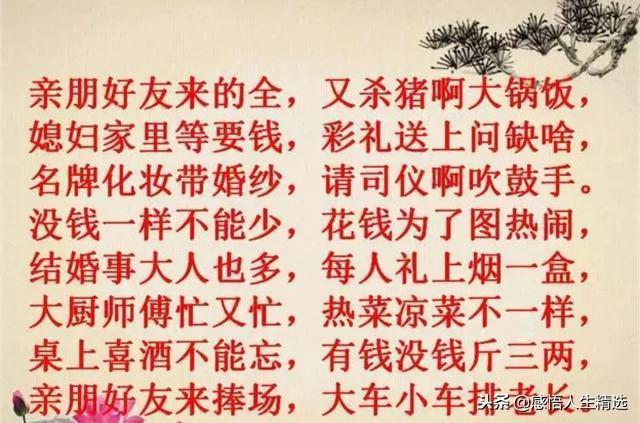 亲朋好友来的全，又杀猪啊大锅饭，
媳妇家里等要钱，彩礼送上问缺啥，
名牌化妆带婚纱，请司仪啊吹鼓手。
没钱一样不能少，花钱为了图热闹，
结婚事大人也多，每人礼上烟一盒，
大厨师傅忙又忙，热菜凉菜不一样，
桌上喜酒不能忘，有钱没钱斤三两，
亲朋好友来捧场，大车小车排老长。
头条@感悟人生精选